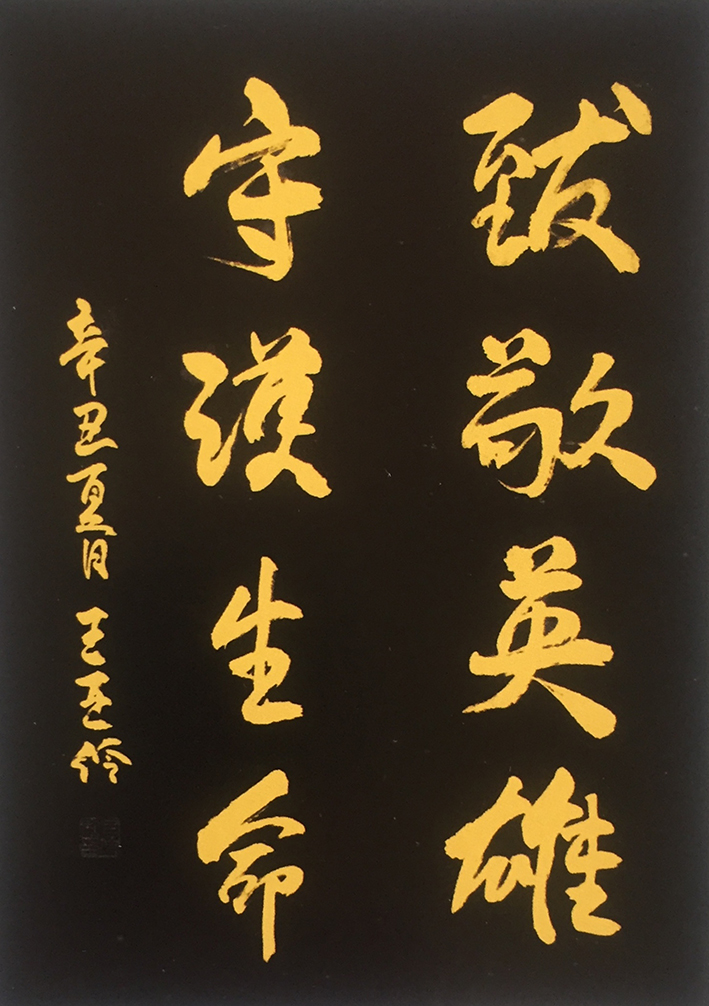 致敬英雄
守護生命
辛丑夏月王玉伶